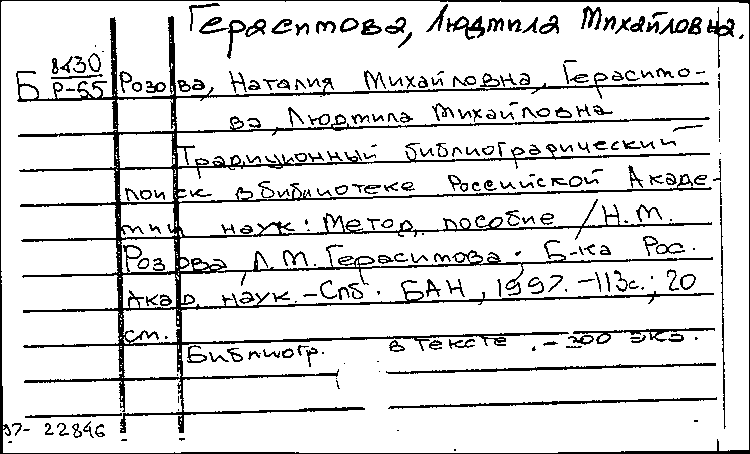 Герасимова, Людмила Михайловна.
Б 8430/Р-65 Розова, Наталия Михайловна, Герасимо-
ва, Людмила Михайловна
Традиционный библиографический
поиск в библиотеке Российской Акаде-
мии наук: Метод. пособие / Н.М.
Розова, Л.М. Герасимова; Б-ка Рос.
Акад. наук. - Спб.: БАН, 1997. - 113с.; 20
см.
Библиогр. в тексте. - 300 экз.
97- 22846